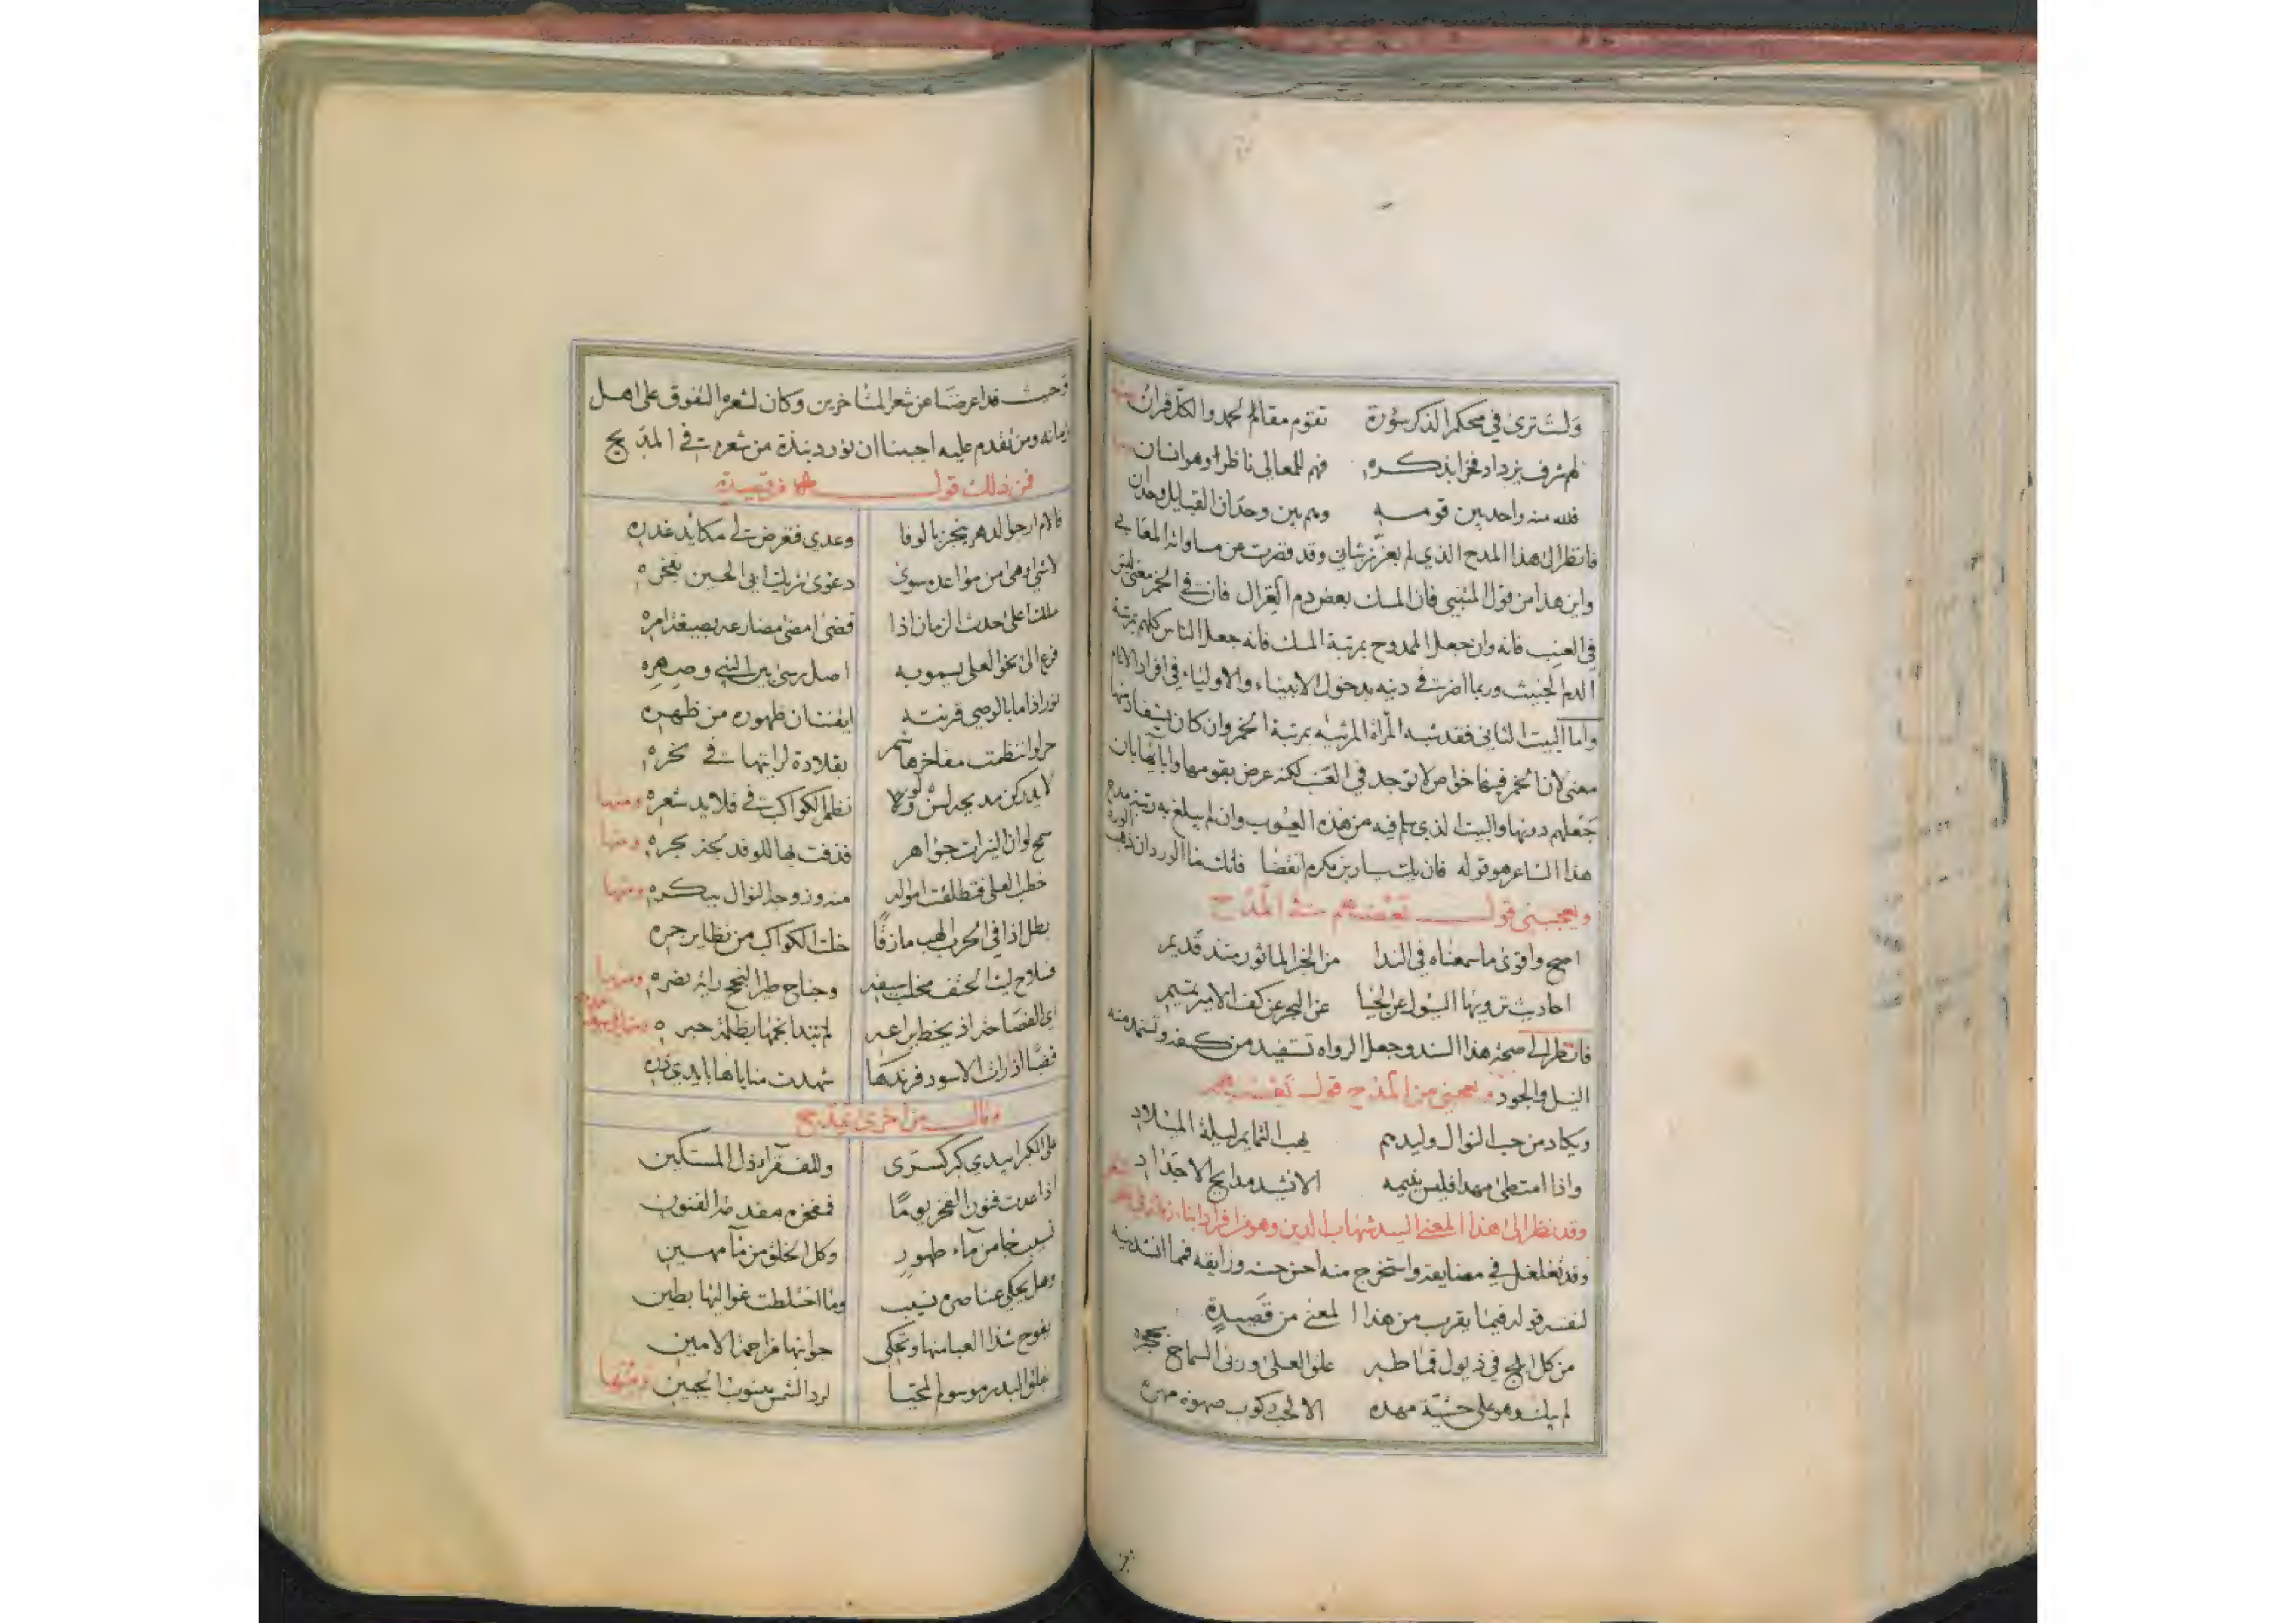 ولست ترى في محكم الذكر سورة تقوم مقام الحمد والكل قرآن
لهم شرف يزداد فخرا بذكره فهم للمعالي ناظر وهو انسان
فلله منه واحد بين قومه وهم بين وحدان القبايل وحدان
فانظر الى هذا المدح الذي لم يعزز بثاني وقد قصرت عن مساواته المعاني
واين هذا من قول المتنبي فان المسك بعض دم الغزال فان في الخمر معنى ليس
في العنب فانه وان جعل الممدوح بمرتبة المسك فانه جعل الناس كلهم بمرتبة
الدم الخبيث وربما اضرت في دينه بدخول الانبياء والاولياء في افراد الانام
واما البيت الثاني فقد شبه المرأة المرثيه بمرتبة الخمر وان كان
معنى لان الخمر فيها خواص لا توجد في العنب لكنه عرض بقومها وابائها بان
جعلهم دونها والبيت الذي سلم فيه من هذه العيوب وان لم يبلغ به رتبة مدح
هذا الشاعر هو قوله فان يك سيار بن مكرم انقضى فانك ماء الورد ان ذهب الورد
ويعجبني قول بعضهم في المدح
اصح واقوى ما سمعناه في الندا من الخبر الماثور منذ قديم
احاديث ترويها السيول عن الحيا عن البحر عن كف الامير تميم
فانظر الى صحة هذا السند وجعل الرواه تستفيد من كفه وتستمد منه
النيل والجود ويعجبني من المدح قول بعضهم
ويكاد من حب النوال وليدهم يهب التمايم ليلة الميلاد
واذا امتطى مهدا فليس ينيمه الا نشيد مدايح الاجداد
وقد نظر الى هذا المعنى السيد شهاب الدين وهو من افراد ابناء زمانه في
وقد تغلغل في مضايقه واستخرج منه احسن حسنه ورايقه فمما انشدنيه
لنفسه قوله فيما يقرب من هذا المعنى من قصيدة
من كل ابلج في ذيول قماطه علق العلى وربى السماح بحجره
لم يبك وهو على حشية مهده الا لحب ركوب صهوة مهره
وحيث قد اعرضنا عن شعر المتاخرين وكان لشعره التفوق على اهل
زمانه ومن تقدم عليه اجبنا ان نورد نبذة من شعره في المديح
فمن ذلك قوله من قصيدة
فالام ارجو الدهر ينجز بالوفا وعدي فتعرض لي مكائد غدره
لا شي اوهى من مواعده سوى دعوى شريك ابي الحسين بفخره
ملك اعلى حدث الزمان اذا قضى امضى مضارعه بصيغة امره
فرع الى نحو العلى يسمو به اصل رسى بين النبي وصهره
نور اذا ما بالوصي قرنته ايقنت ان ظهوره من ظهره
حر لو انتظمت مفاخر هاشم بقلادة لرايتها في نحره
نظم الكواكب في قلايد شعره ومنها
سمح لو ان النيرات جواهر قذفت بها للوفد لجة بحره ومنها
خطب العلى فتطلقت امواله منه وزوجه النوال ببكره ومنها
بطل اذا في الحرب الهب مازقا خلت الكواكب من تطاير جمره
فسلاح ليث الحتف مخلب سيفه وجناح طير النجح راية نصره ومنها
اي الفصاحة اذ يخط يراعه لم تبد انجمها بظلمة حبره
قضبا اذا رات الاسود فرندها شهدت مناياها بايدي ذره
وقال من اخرى يمدح
على الكبرا يبدي كبر كسرى وللفقراء ذل المستكين
اذا عدت فنون الفخر يوما ففخره مقدمة الفنون
نسيب خا من ماء طهور وكل الخلق من ماء مهين
وهل يحكي عناصره نسيب وما اختلطت غواليها بطين
يفوح شذا العبا منها وتحكي جوانها مزاحمة الامين
فلق البدر موسوم المحيا لرد الشمس ينسوب الجبين ومنها